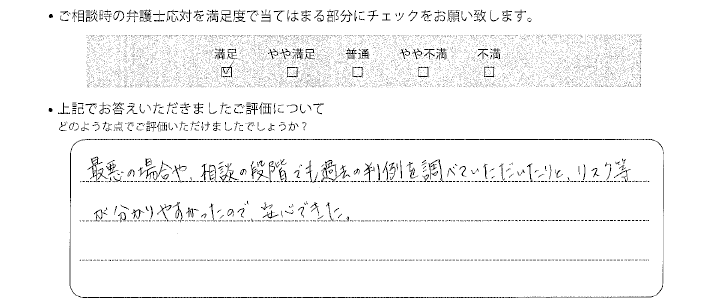 • ご相談時の弁護士応対を満足度で当てはまる部分にチェックをお願い致します。
満足 やや満足 普通 やや不満 不満
☑ ☐ ☐ ☐ ☐
• 上記でお答えいただきましたご評価について
どのような点でご評価いただけましたでしょうか?
最悪の場合や、相談の段階でも過去の判例を調べていただいたりと、リスク等
が分かりやすかったので、安心できた。